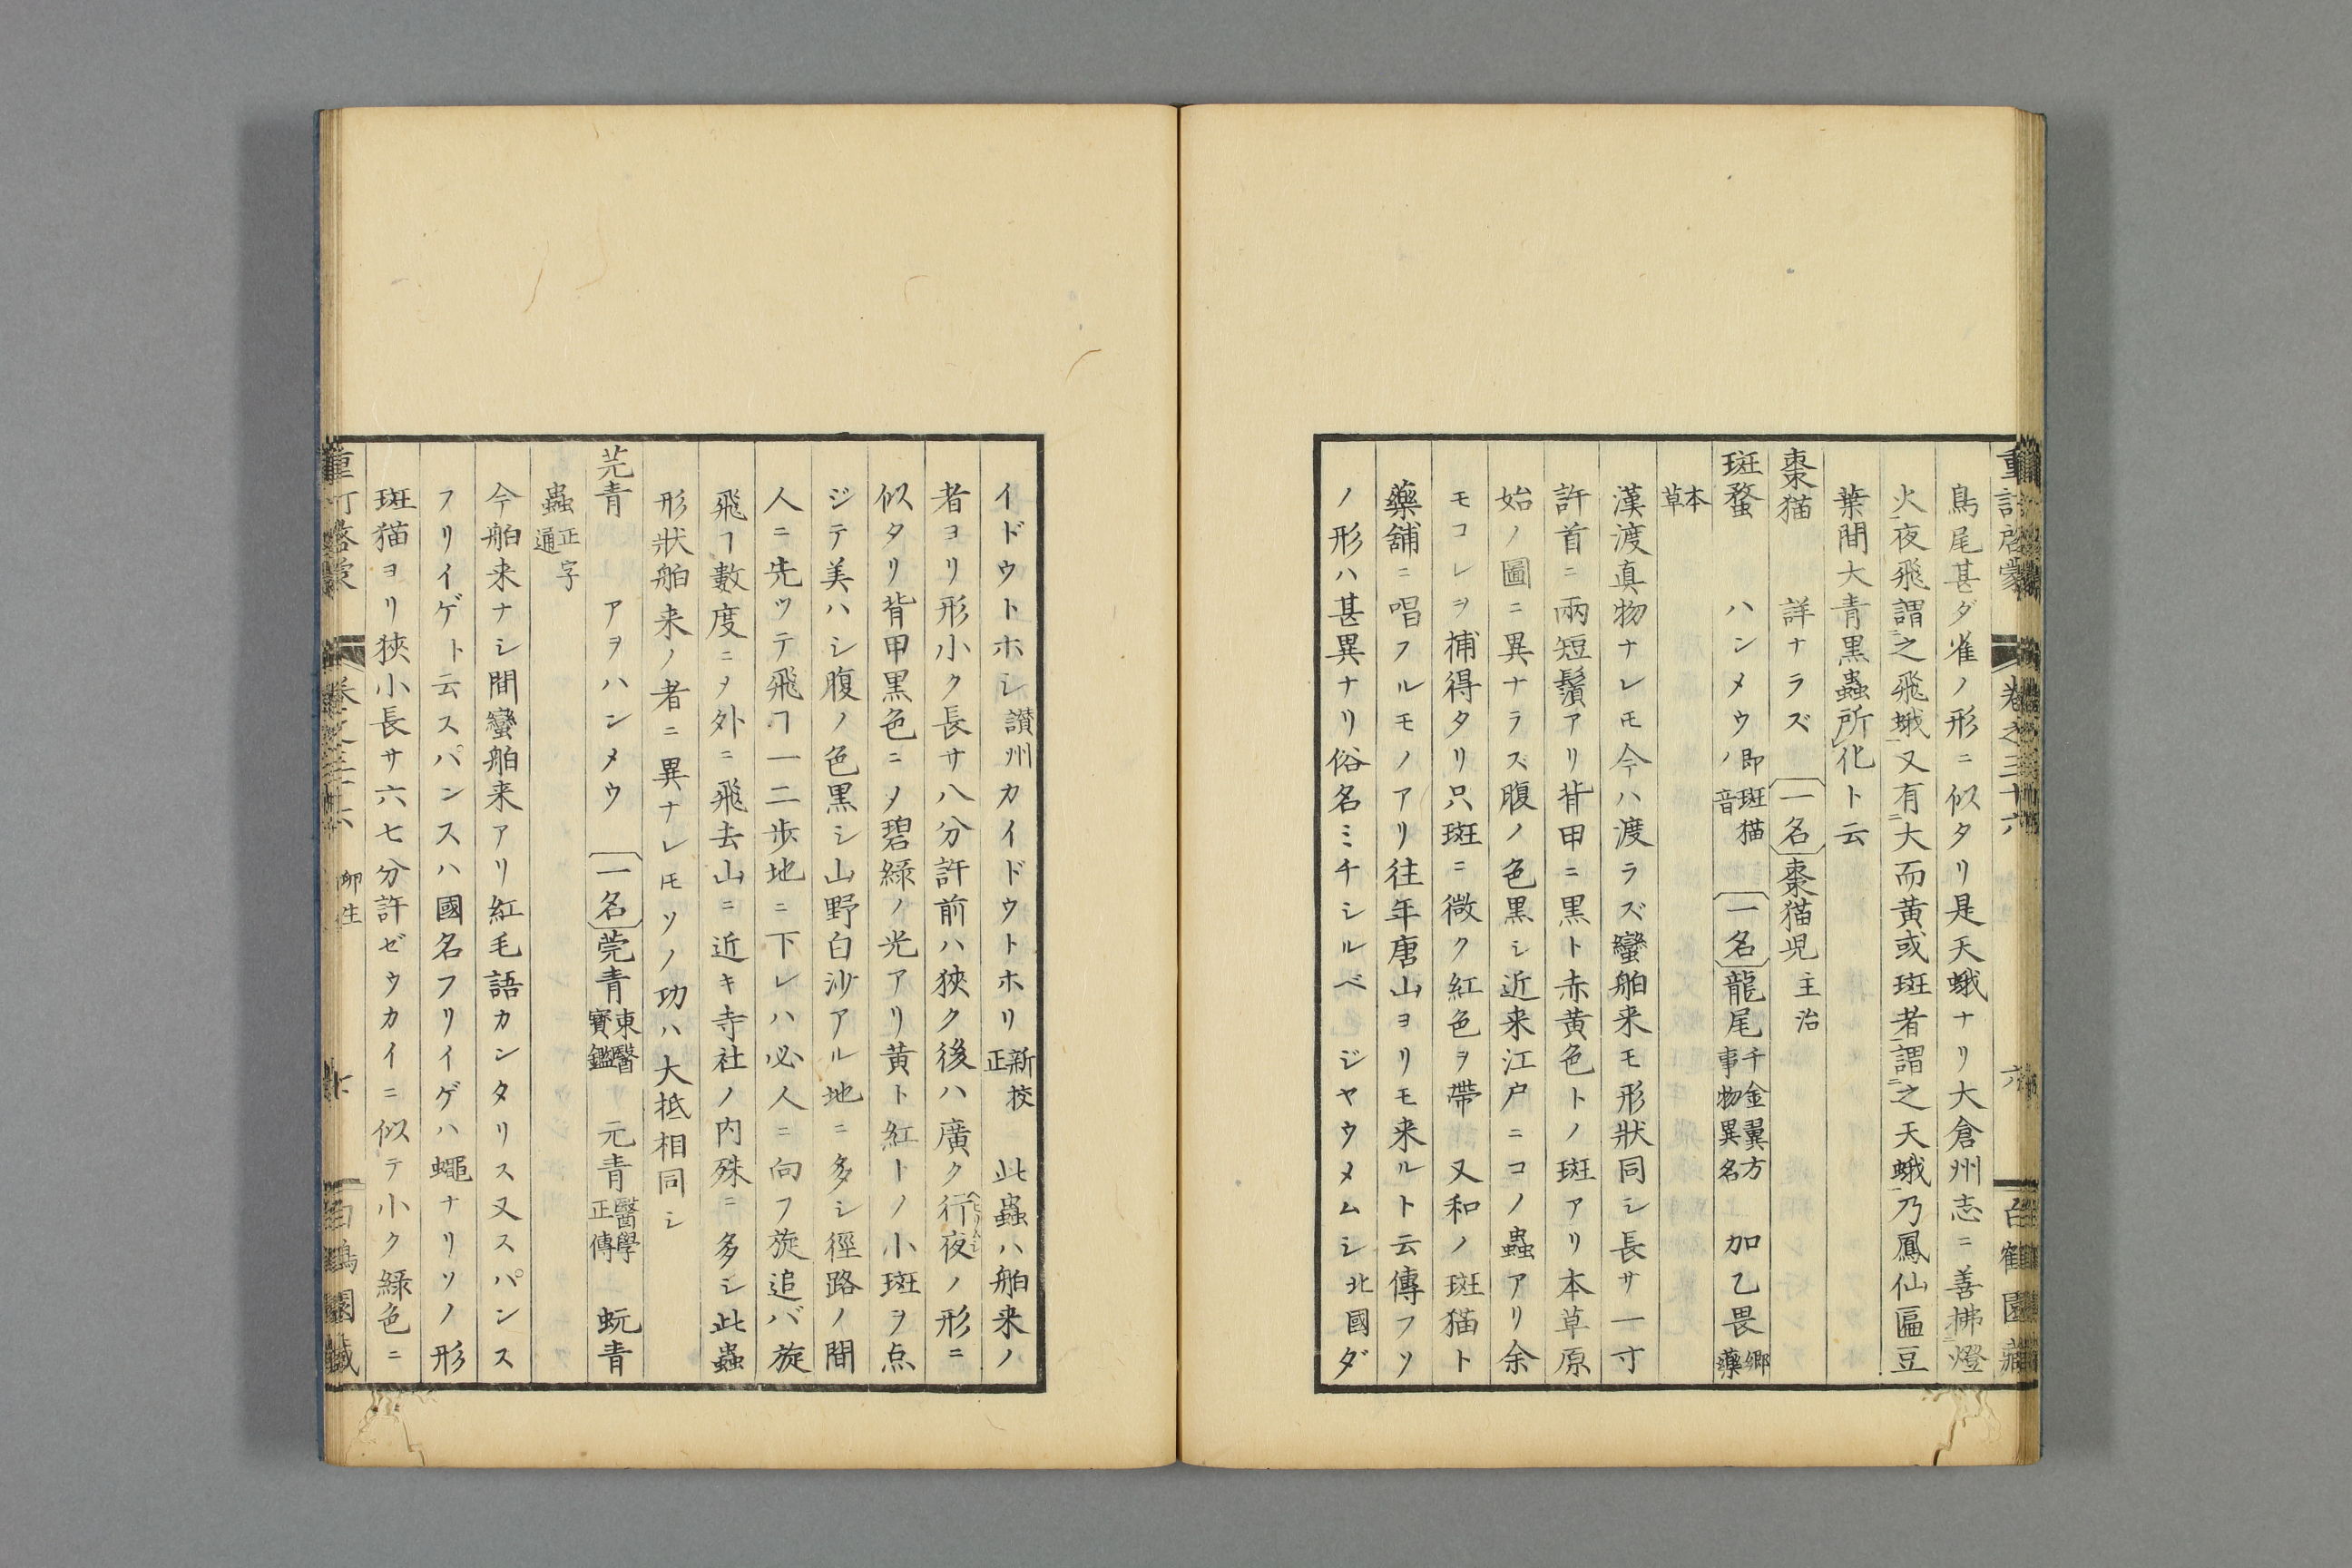 重訂啓蒙 卷之三十六 六 百鶴園藏
鳥尾甚ダ雀ノ形ニ似タリ是天蛾ナリ大倉州志ニ善拂燈
火夜飛謂之飛蛾又有大而黄或斑者謂之天蛾乃鳳仙匾豆
葉間大青黒蟲所化ト云
棗猫 詳ナラズ 一名 棗猫児 主治
斑蝥 ハンメウ 即斑猫ノ音 一名 龍尾 千金翼方 事物異名 加乙畏 郷藥
本草
漢渡真物ナレ𪜈今ハ渡ラズ蠻舶来モ形狀同シ長サ一寸
許首ニ兩短鬚アリ背甲ニ黒ト赤黄色トノ斑アリ本草原
始ノ圖ニ異ナラズ腹ノ色黒シ近来江戸ニコノ蟲アリ余
モコレヲ捕得タリ只斑ニ微ク紅色ヲ帶 又和ノ斑猫ト
藥舖ニ唱フルモノアリ往年唐山ヨリモ来ルト云傳フソ
ノ形ハ甚異ナリ俗名ミチシルベ ジヤウメムシ 北國 ダ
イドウトホシ 讃州 カイドウトホリ 新校正 此蟲ハ舶来ノ
者ヨリ形小ク長サ八分許前ハ狹ク後ハ廣ク行夜ノ形ニ
似タリ背甲黒色ニヿ碧綠ノ光アリ黄ト紅トノ小斑ヲ点
ジテ美ハシ腹ノ色黒シ山野白沙アル地ニ多シ徑路ノ間
人ニ先ツテ飛ヿ一二歩地ニ下レハ必人ニ向フ旋追バ旋
飛ヿ數度ニヿ外ニ飛去山ニ近キ寺社ノ内殊ニ多シ此蟲
形狀舶来ノ者ニ異ナレ𪜈ソノ功ハ大抵相同シ
芫青 アヲハンメウ 一名 莞青 東醫寳鑑 元青 醫學正傳 蚖青
蟲 正字通
今舶来ナシ間蠻舶来アリ紅毛語カンタリス又スパンス
フリイゲト云スパンスハ國名フリイゲハ蠅ナリソノ形
斑猫ヨリ狹小長サ六七分許ゼウカイニ似テ小ク緑色ニ
重訂啓蒙 卷之三十六 卵生 百鶴園藏